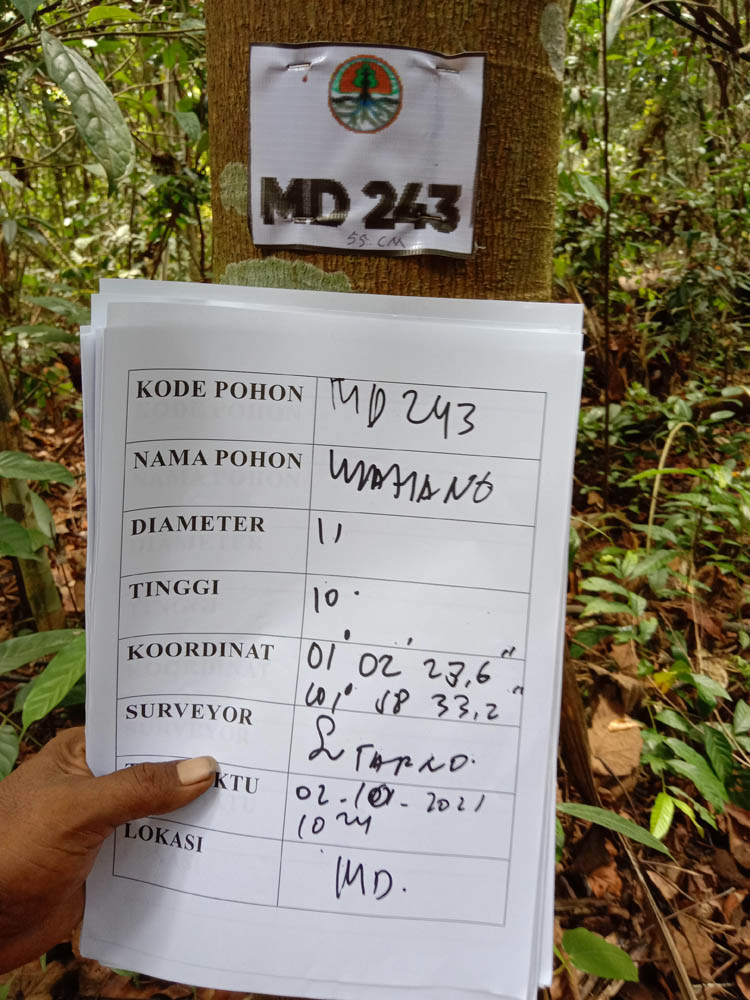 MD 243
55 CM
KODE POHON MD 243
NAMA POHON
DIAMETER 11
TINGGI 10.
KOORDINAT 01° 02' 23,6"
101° 58 33,2"
SURVEYOR
KTU 02-10-2021
10 24
LOKASI MD.